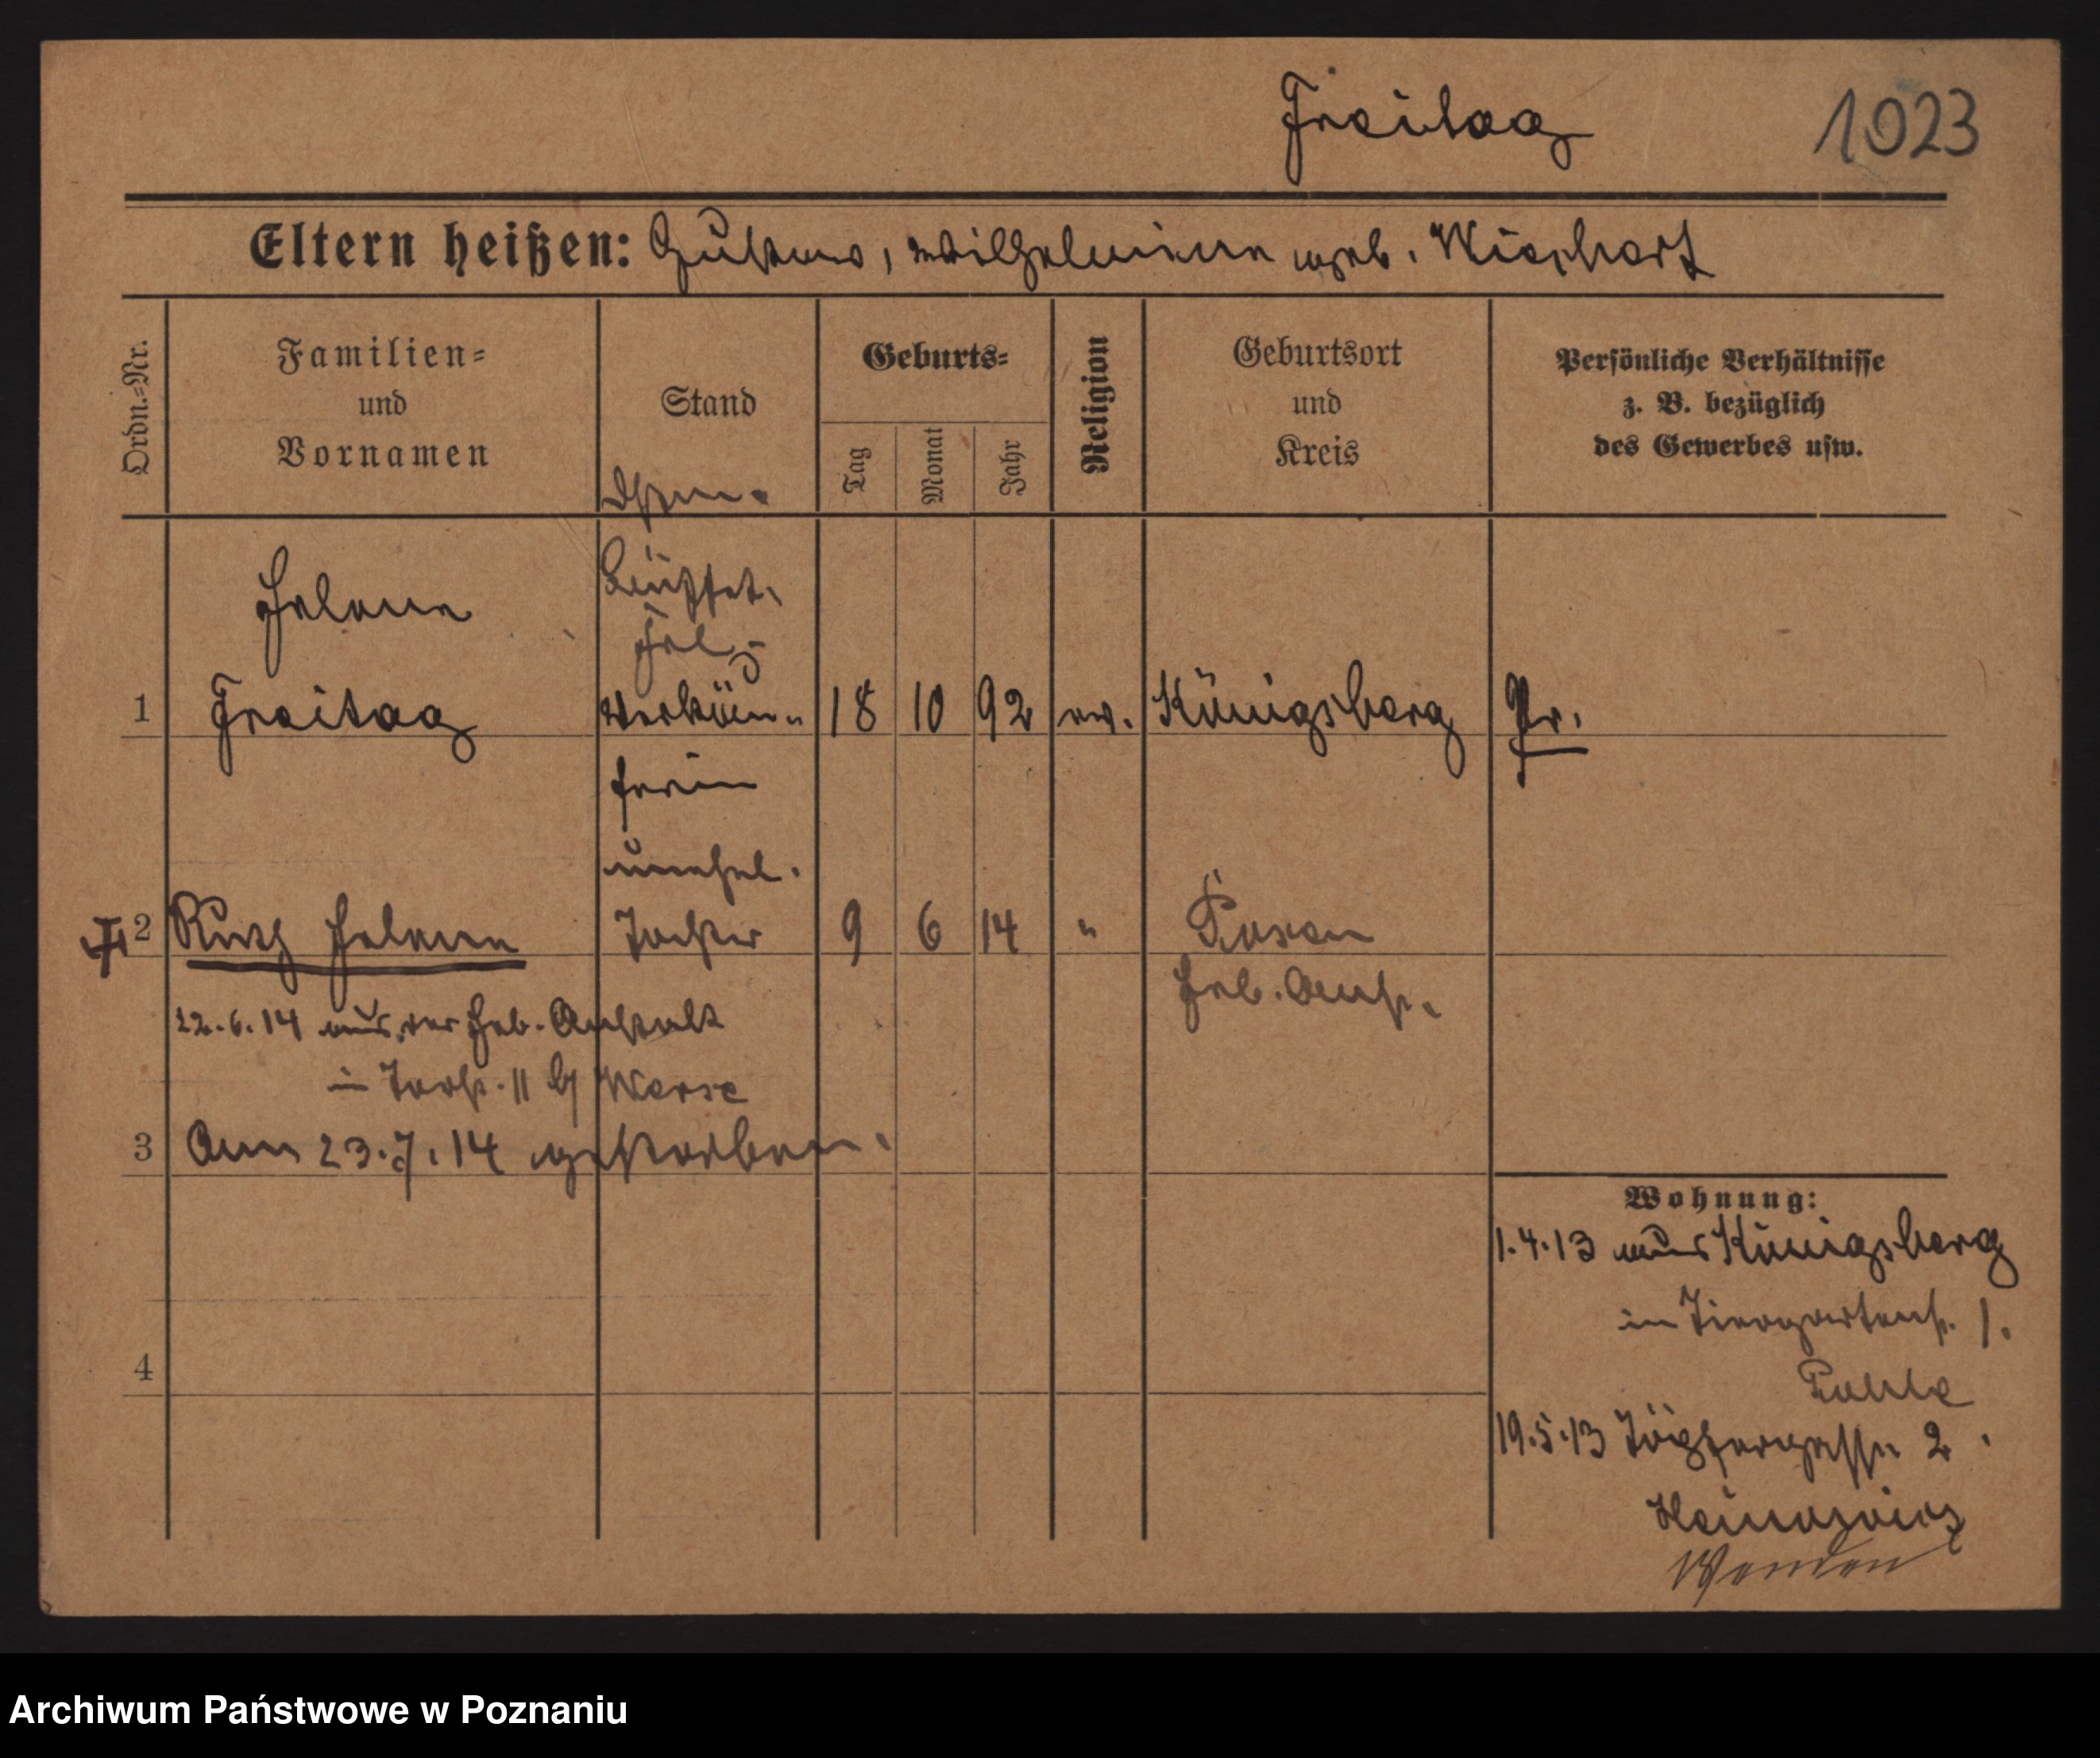 Freitag
1023
Eltern heißen: Gustav, Wilhelmine geb. Wiechert
Ordn.-Nr.
Familien-
und
Vornamen
Stand
Geburts-
Tag
Monat
Jahr
Religion
Geburtsort
und
Kreis
Persönliche Verhältnisse
z. B. bezüglich
des Gewerbes usw.
Helene
Büffet
1 Freitag Verkäu- 18 10 92 ev. Königsberg Pr.
ferin
unehel.
2 Ruth Helene Tochter 9 6 14 " Posen
Heb. Anst.
22.6.14 aus der Heb. Anstalt
in 11 b/
3 Am 23.7.14 gestorben.
Wohnung:
1.4.13 aus Königsberg
in Tiergartenstr. 1.
19.5.13 2.
4
Wenden
Archiwum Państwowe w Poznaniu